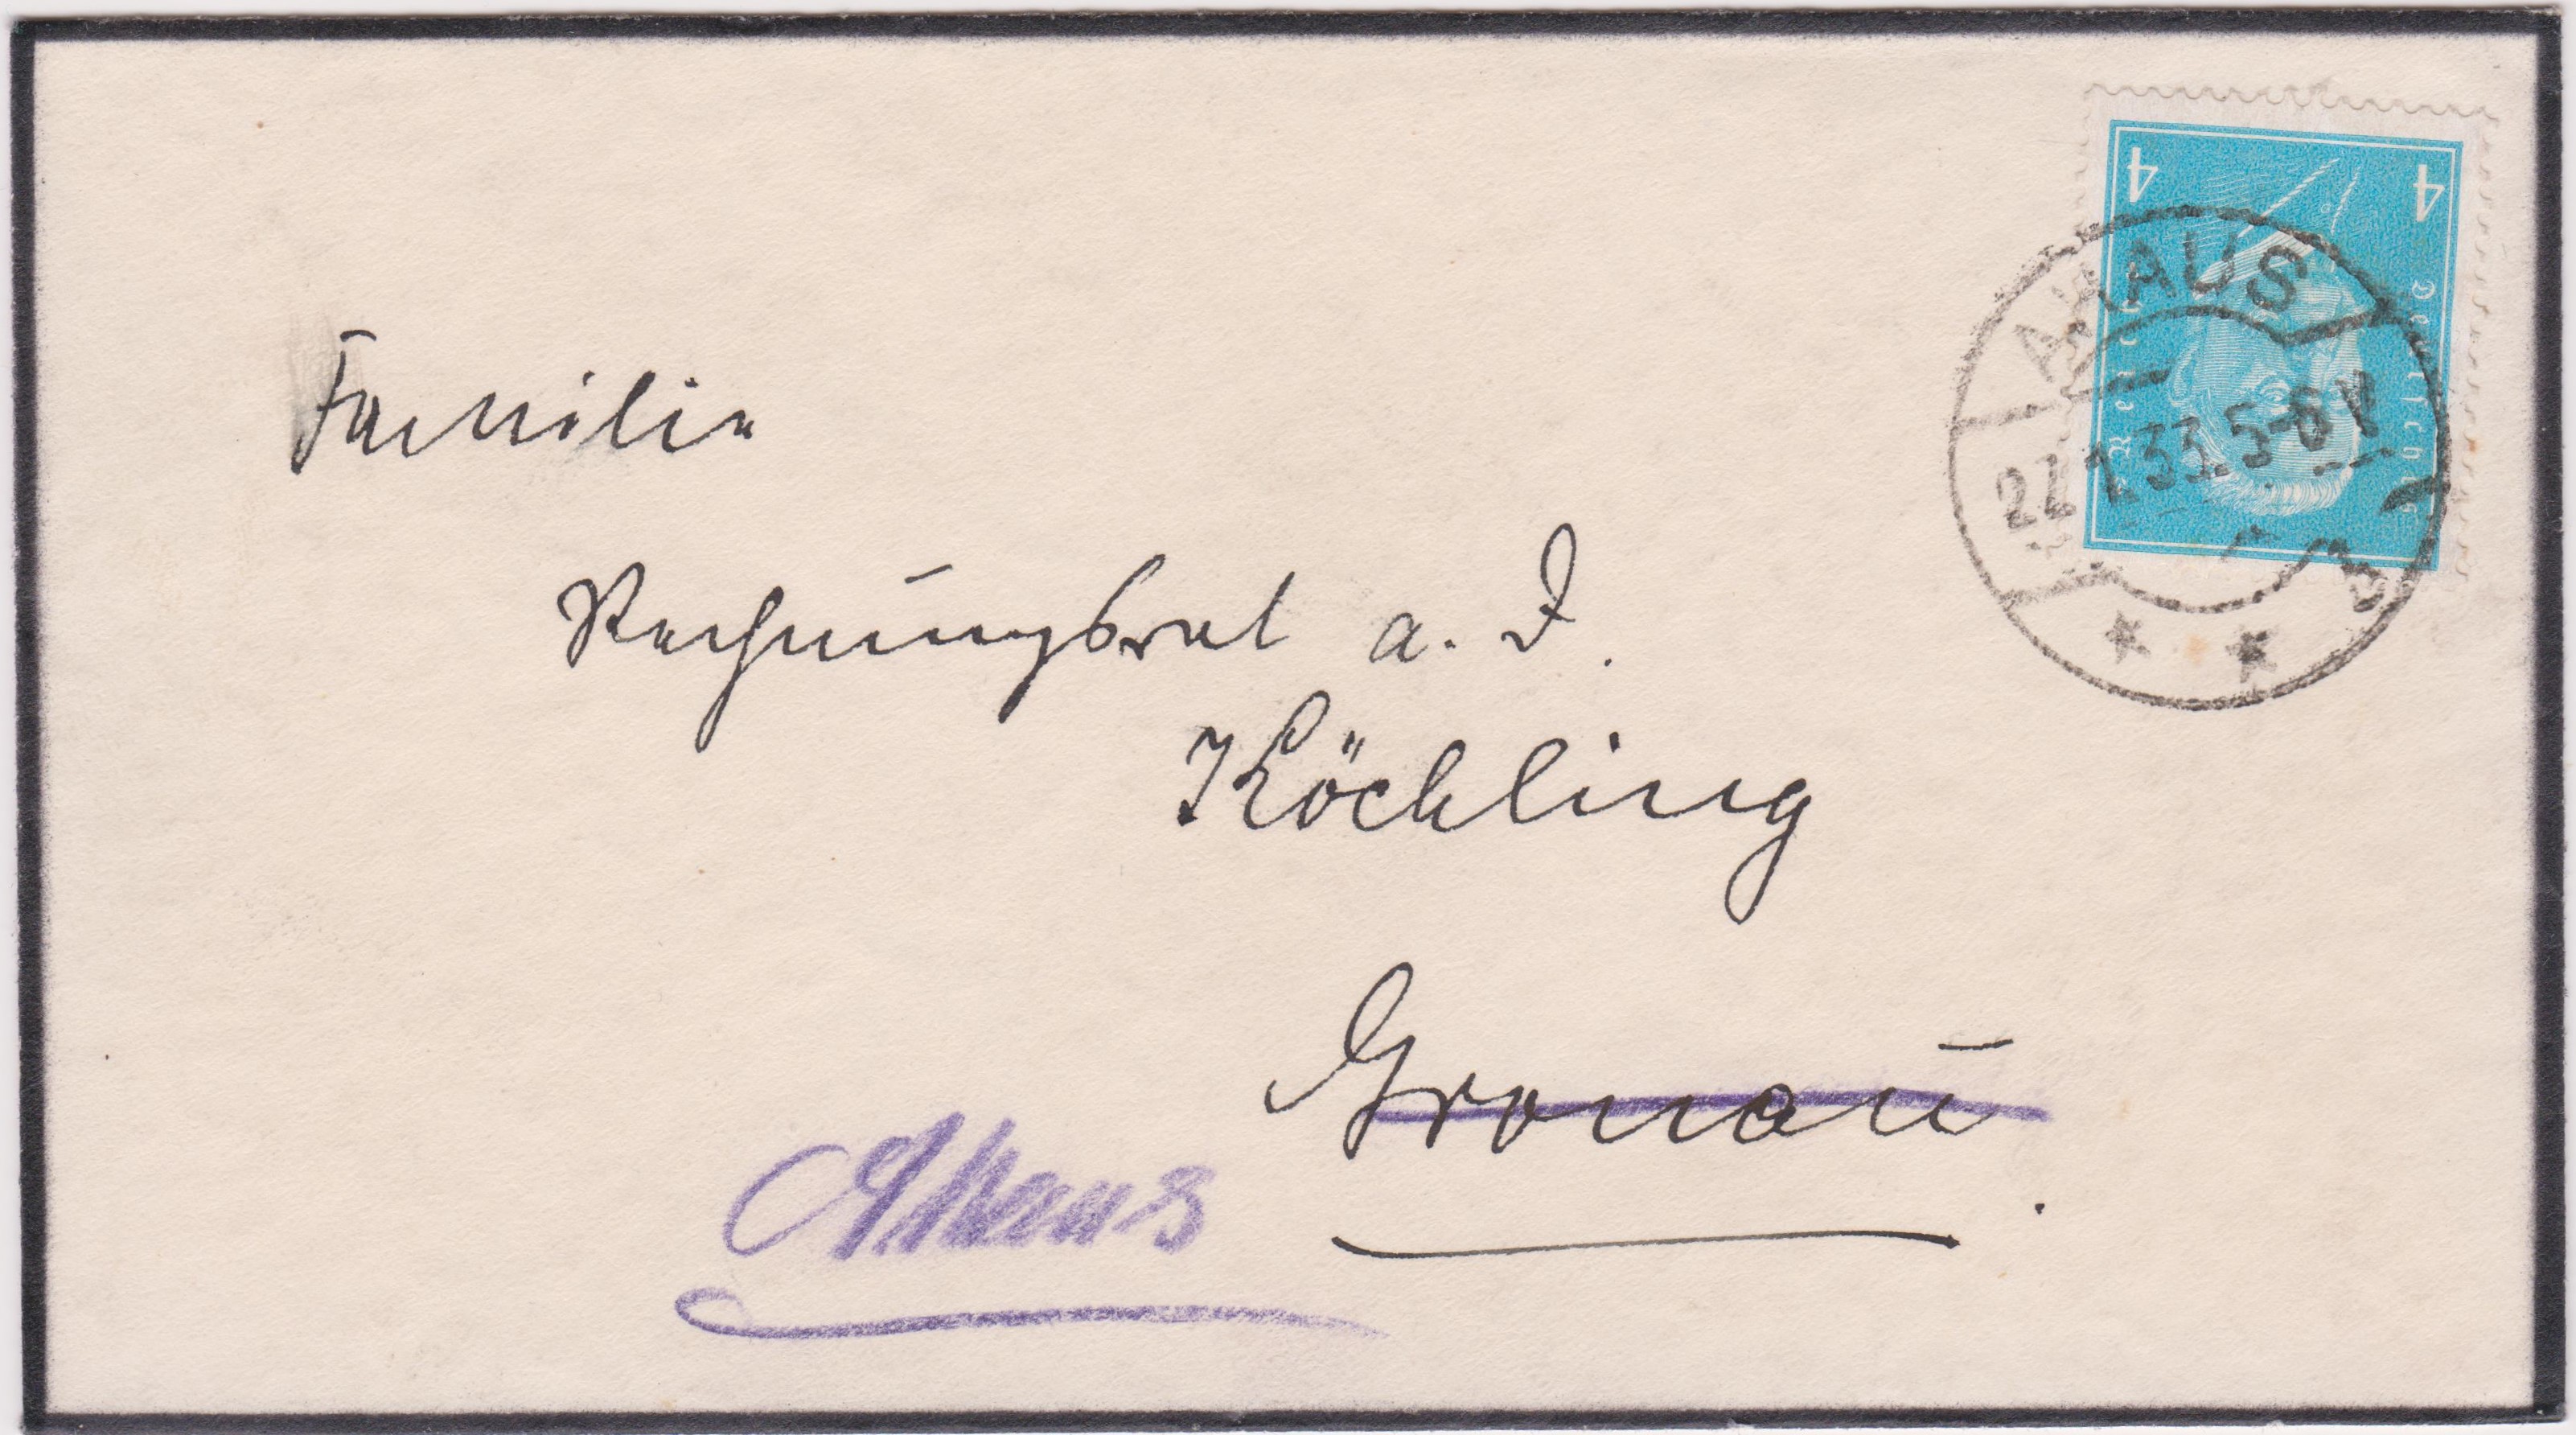 4 4
Deutsches Reich
AHAUS
1.33.5-6V
Familie
Rechnungsrat a. D.
Köckling
Gronau.
Ahaus